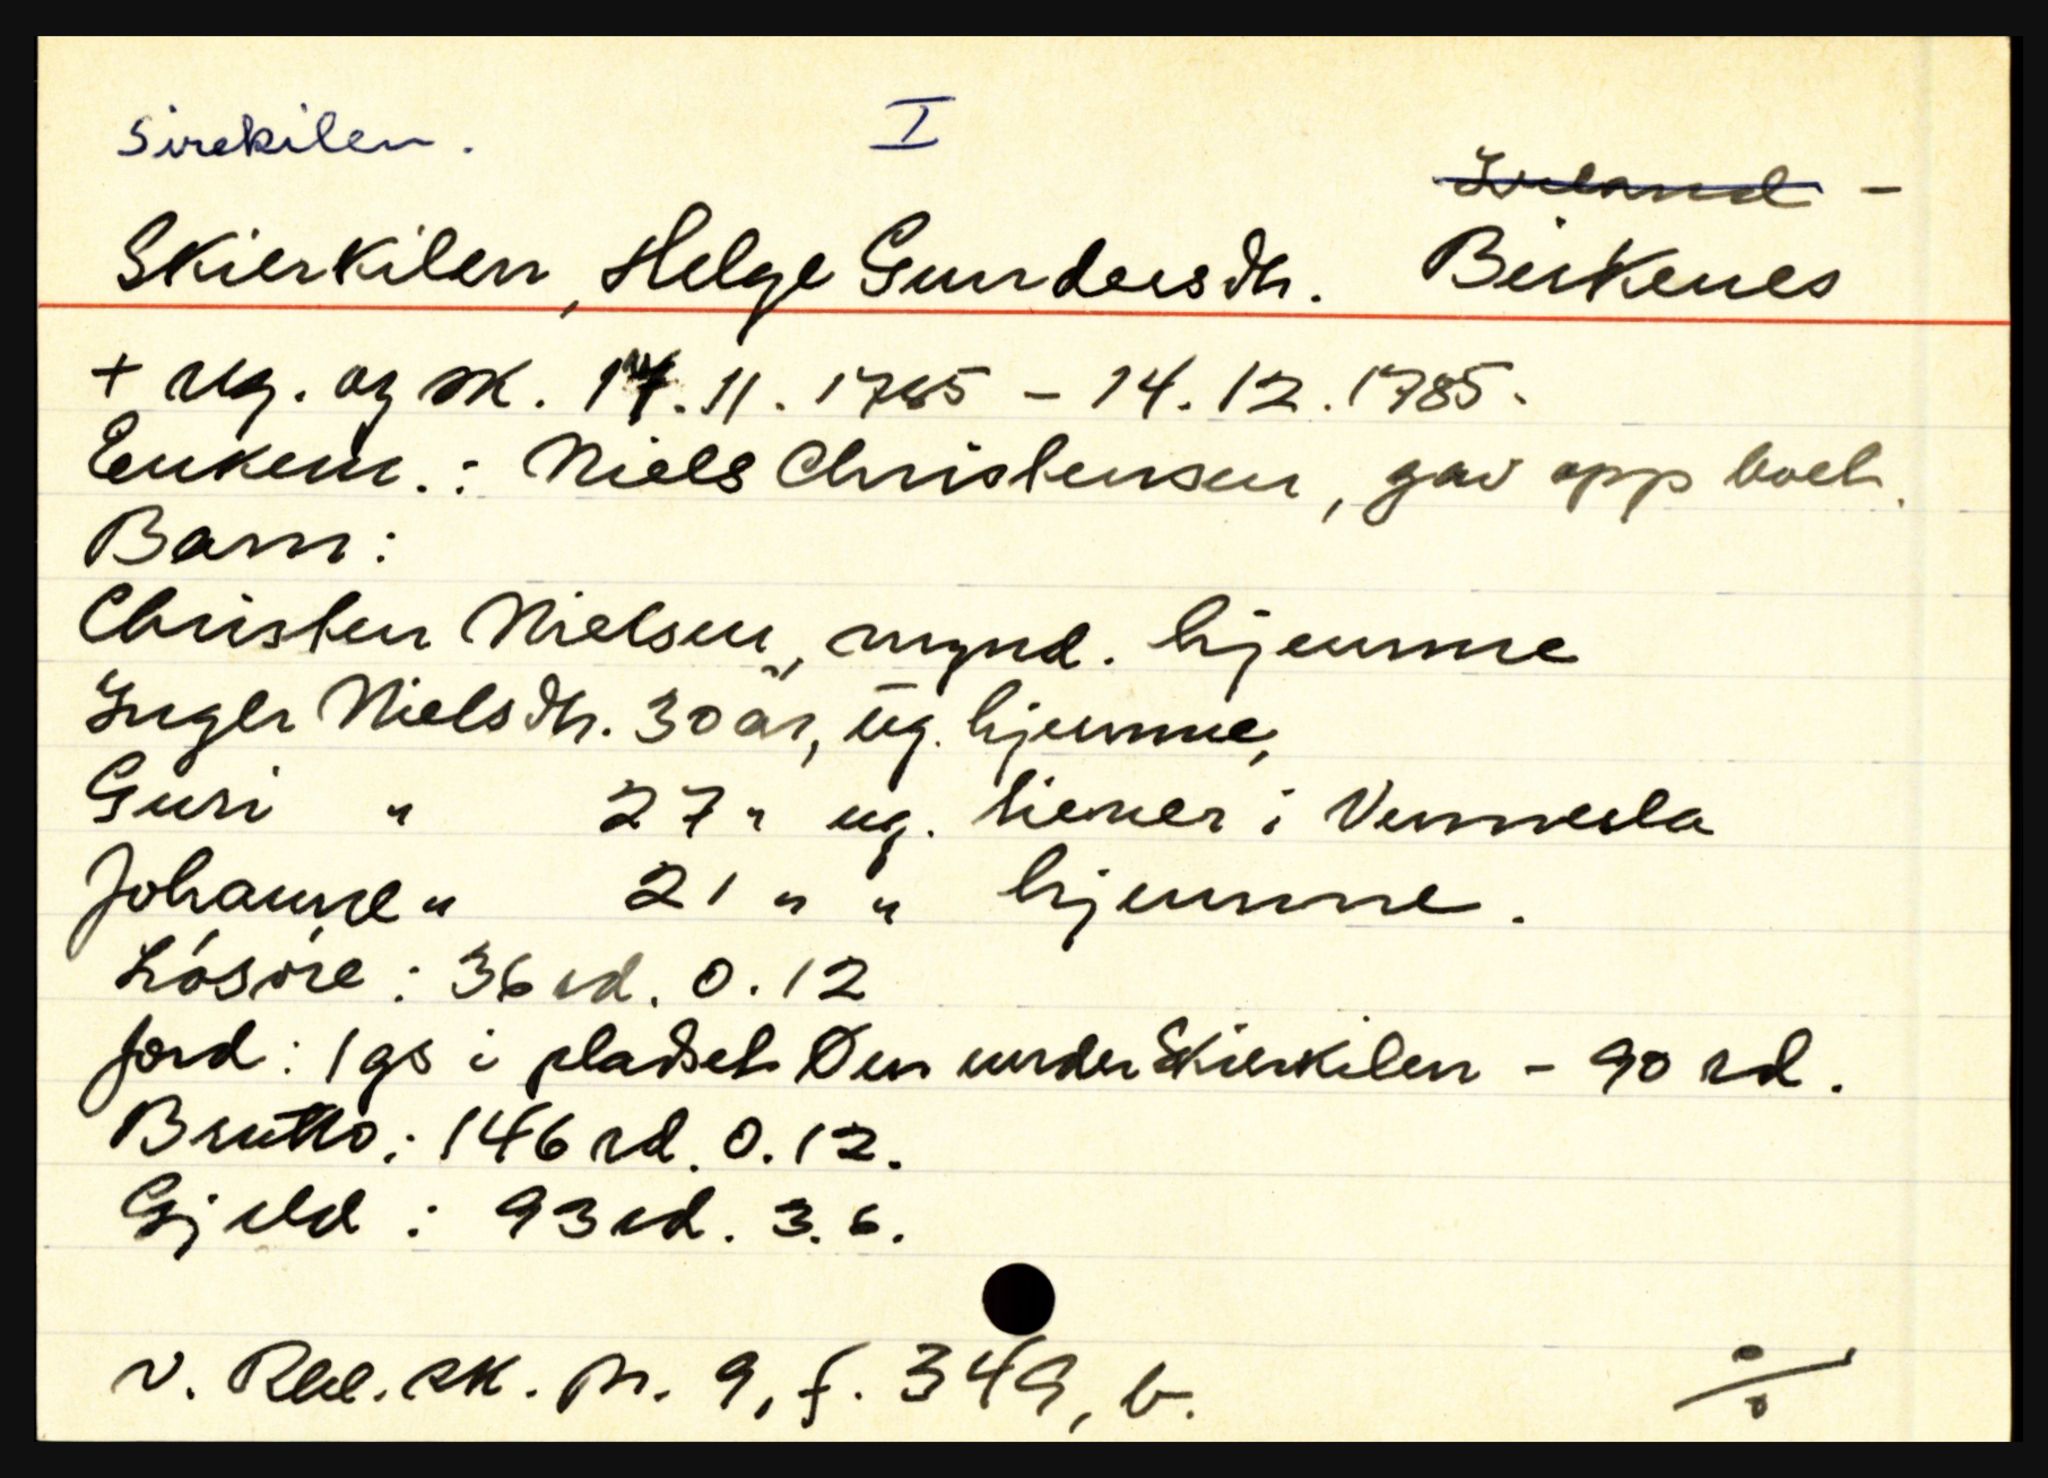 Sirekilen. I
Iveland -
Skierkilen, Helge Gundersdtr. Birkenes
+ reg. og sk. 17.11.1785 - 14.12.1785.
Enkem.: Niels Christensen, gav opp boet.
Barn:
Christen Nielsen, mynd. hjemme
Inger Nielsdtr. 30 år, ug. hjemme,
Guri " 27 " ug. tiener i Vennesla
Johanne " 21 " " hjemme.
Lósóre: 36 rd. 0.12
Jord: 1 gs i pladset Øen under Skierkilen - 90 rd.
Brutto: 146 rd. 0.12.
Gjeld: 93 rd. 3.6.
v. Rbl. sk. pr. 9, f. 349, b.